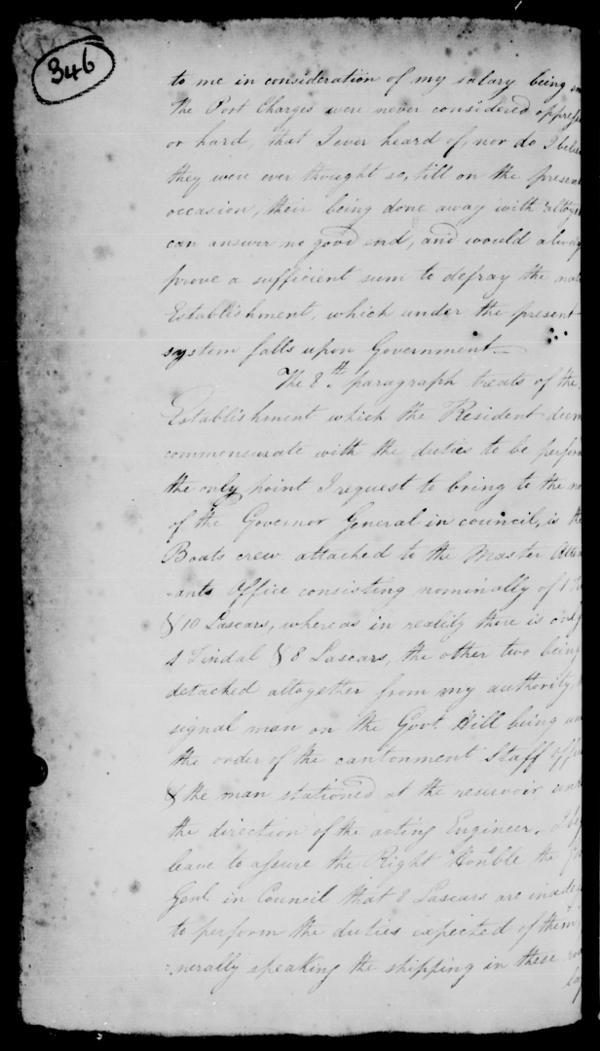 346
to me in consideration of my salary being
the Port Charges were never considered
or hard, that I ever heard of, nor do I
they were ever thought so, till on the
occasion, their being done away with
can answer no good end, and would
prove a sufficient sum to defray the
Establishment, which under the present
system falls upon Government.—
The 8th paragraph treats of the
Establishment which the Resident
commensurate with the duties to be
the only point I request to bring to the
of the Governor General in council, is the
Boats crew attached to the Master
ants Office consisting nominally of 1
& 10 Lascars, whereas in reality there is only
1 Tindal & 8 Lascars, the other two being
detached altogether from my authority,
signal man on the Govt. Hill being
the order of the cantonment Staff
& the man stationed at the reservoir
the direction of the acting Engineer, I
leave to assure the Right Honble the
Genl. in Council that 8 Lascars are
to perform the duties expected of them
nerally speaking the shipping in these